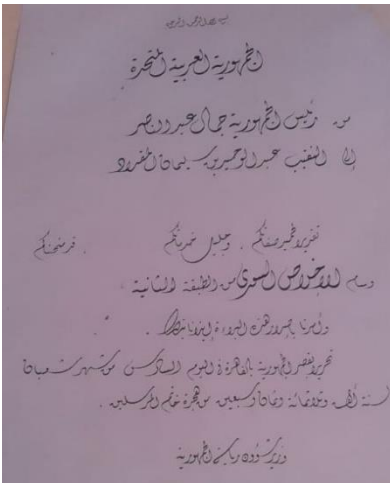 بسم الله الرحمن الرحيم
الجمهورية العربية المتحدة
من رئيس الجمهورية جمال عبد الناصر
إلى النقيب عبد الوحيد بن سليمان المفرد
تقديرا لحميد صفاتكم ، وجليل خدماتكم ، قد منحناكم
وسام الإخلاص السوري من الطبقة الثانية
وأمرنا بإصدار هذه البراءة إيذانا بذلك .
تحريرا بقصر الجمهورية بالقاهرة في اليوم السادس من شهر شعبان
لسنة ألف وثلاثمائة وثمان وسبعين من هجرة خاتم المرسلين .
وزير شؤون رياسة الجمهورية